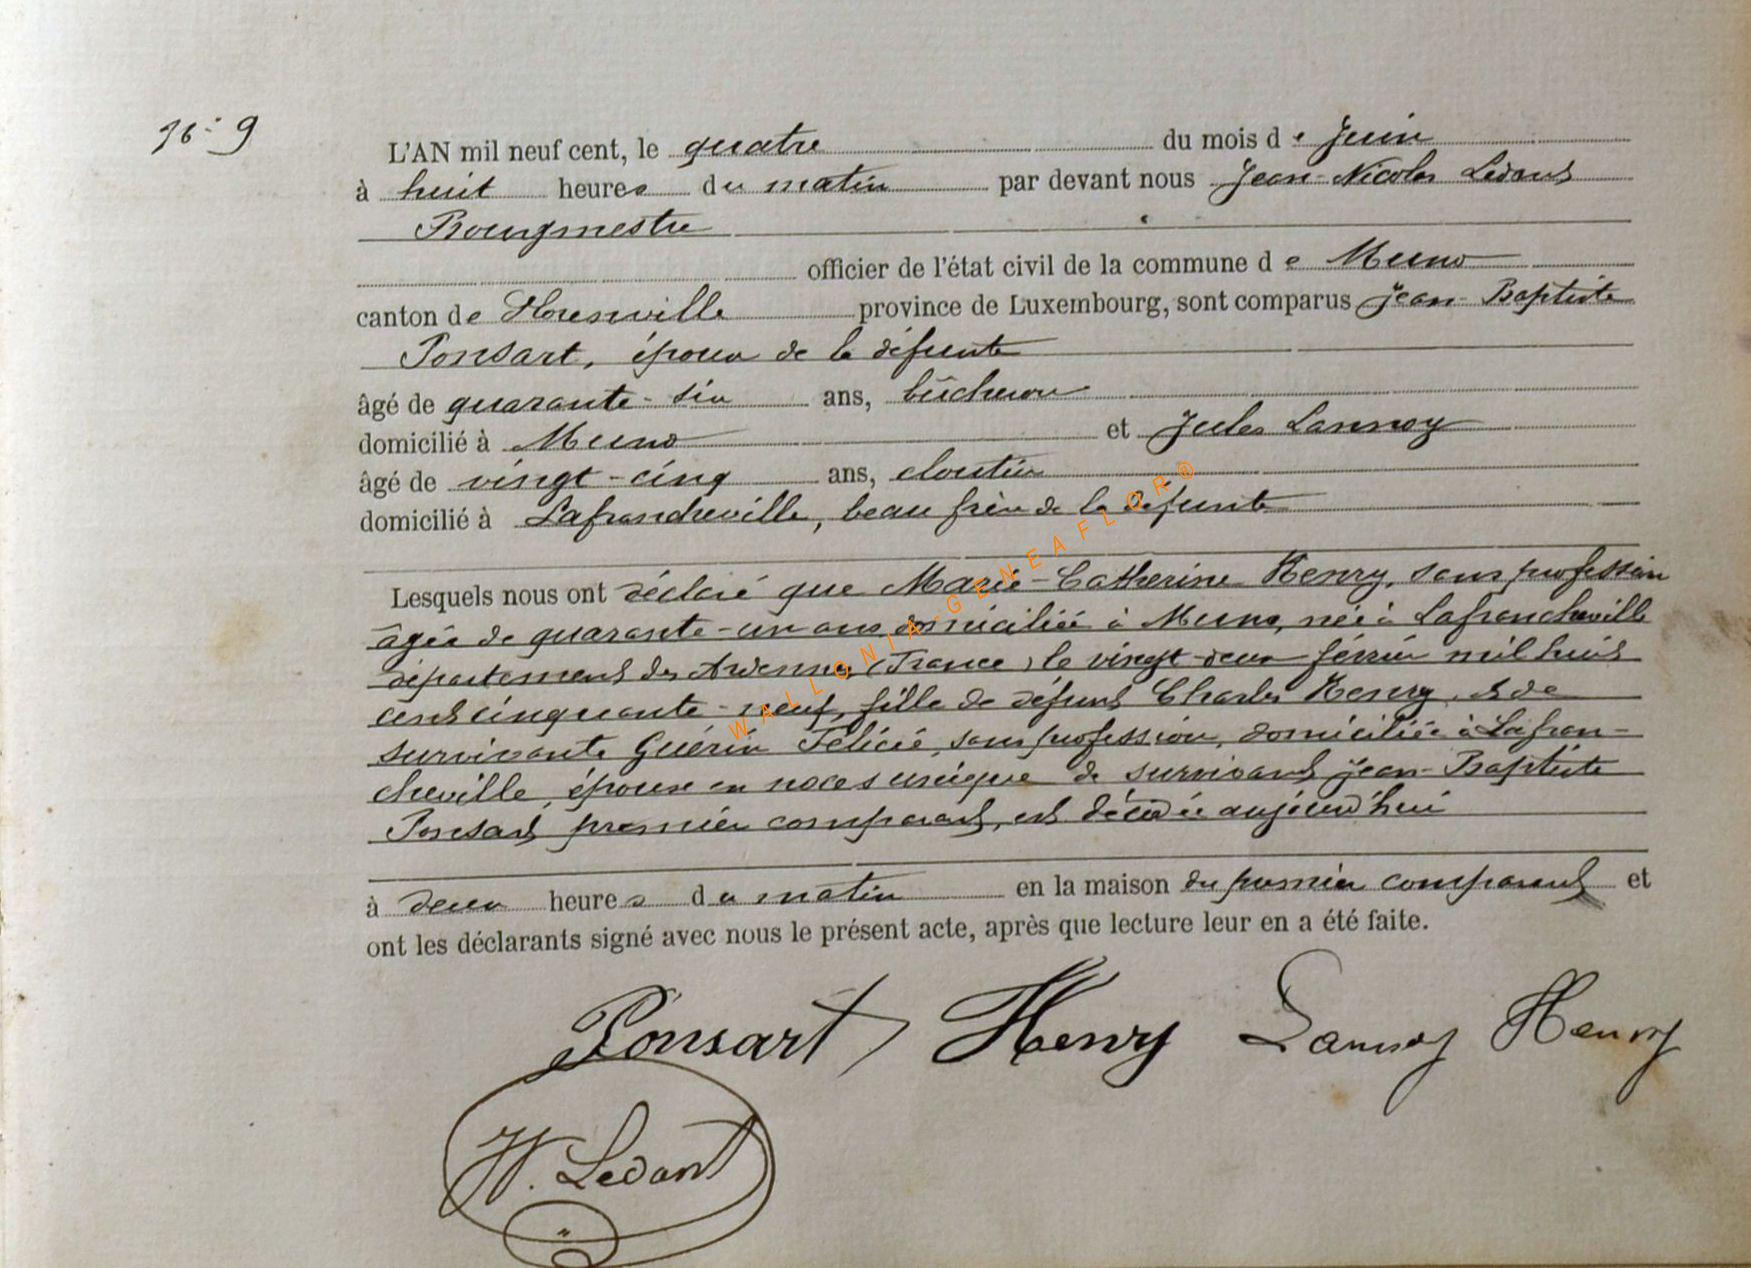 N° 9
L'AN mil neuf cent, le quatre du mois de Juin
à huit heures du matin par devant nous Jean-Nicolas Ledant
Bourgmestre
officier de l'état civil de la commune de Muno
canton de Florenville province de Luxembourg, sont comparus Jean-Baptiste
Ponsart, époux de la défunte
âgé de quarante-six ans, bûcheron
domicilié à Muno et Jules Lannoy
âgé de vingt-cinq ans, cloutier
domicilié à Lafrancheville, beau frère de la défunte
Lesquels nous ont déclaré que Marie-Catherine Henry, sans profession
âgée de quarante-un ans domiciliée à Muno, née à Lafrancheville
département des Ardennes (France) le vingt-deux février mil huit
cent cinquante-neuf, fille de défunt Charles Henry et de
survivante Guérin Félicie, sans profession, domiciliée à Lafran-
cheville, épouse en noces unique de survivant Jean-Baptiste
Ponsart premier comparant, est décédée aujourd'hui
à deux heures du matin en la maison du premier comparant et
ont les déclarants signé avec nous le présent acte, après que lecture leur en a été faite.
Ponsart Henry Lannoy Henry
N. Ledant
WALLONIA-GENEAFLOR®